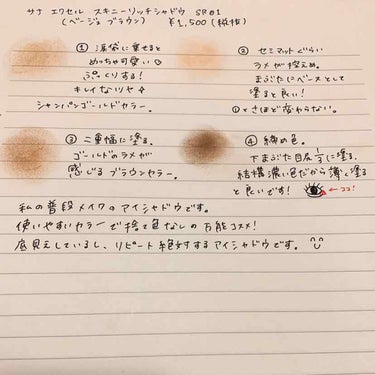 サナ エクセル スキニーリッチシャドウ SR01
(ベージュブラウン) ¥1,500(税抜)
① 涙袋に乗せると
めっちゃ可愛い
ぷっくりする!
キレイなツヤ
シャンパンゴールドカラー。
② セミマットぐらい
ラメが控えめ。
まぶたにベースとして
塗ると良い!
①とさほど変わらない。
③ 二重幅に塗る。
ゴールドのラメが
感じるブラウンカラー。
④ 締め色。
下まぶた目尻1/3に塗る。
結構濃い色だから薄く塗る
と良いです! ←ココ!
私の普段メイクのアイシャドウです。
使いやすいカラーで捨て色なしの万能コスメ!
底見えしているし、リピート絶対するアイシャドウです。